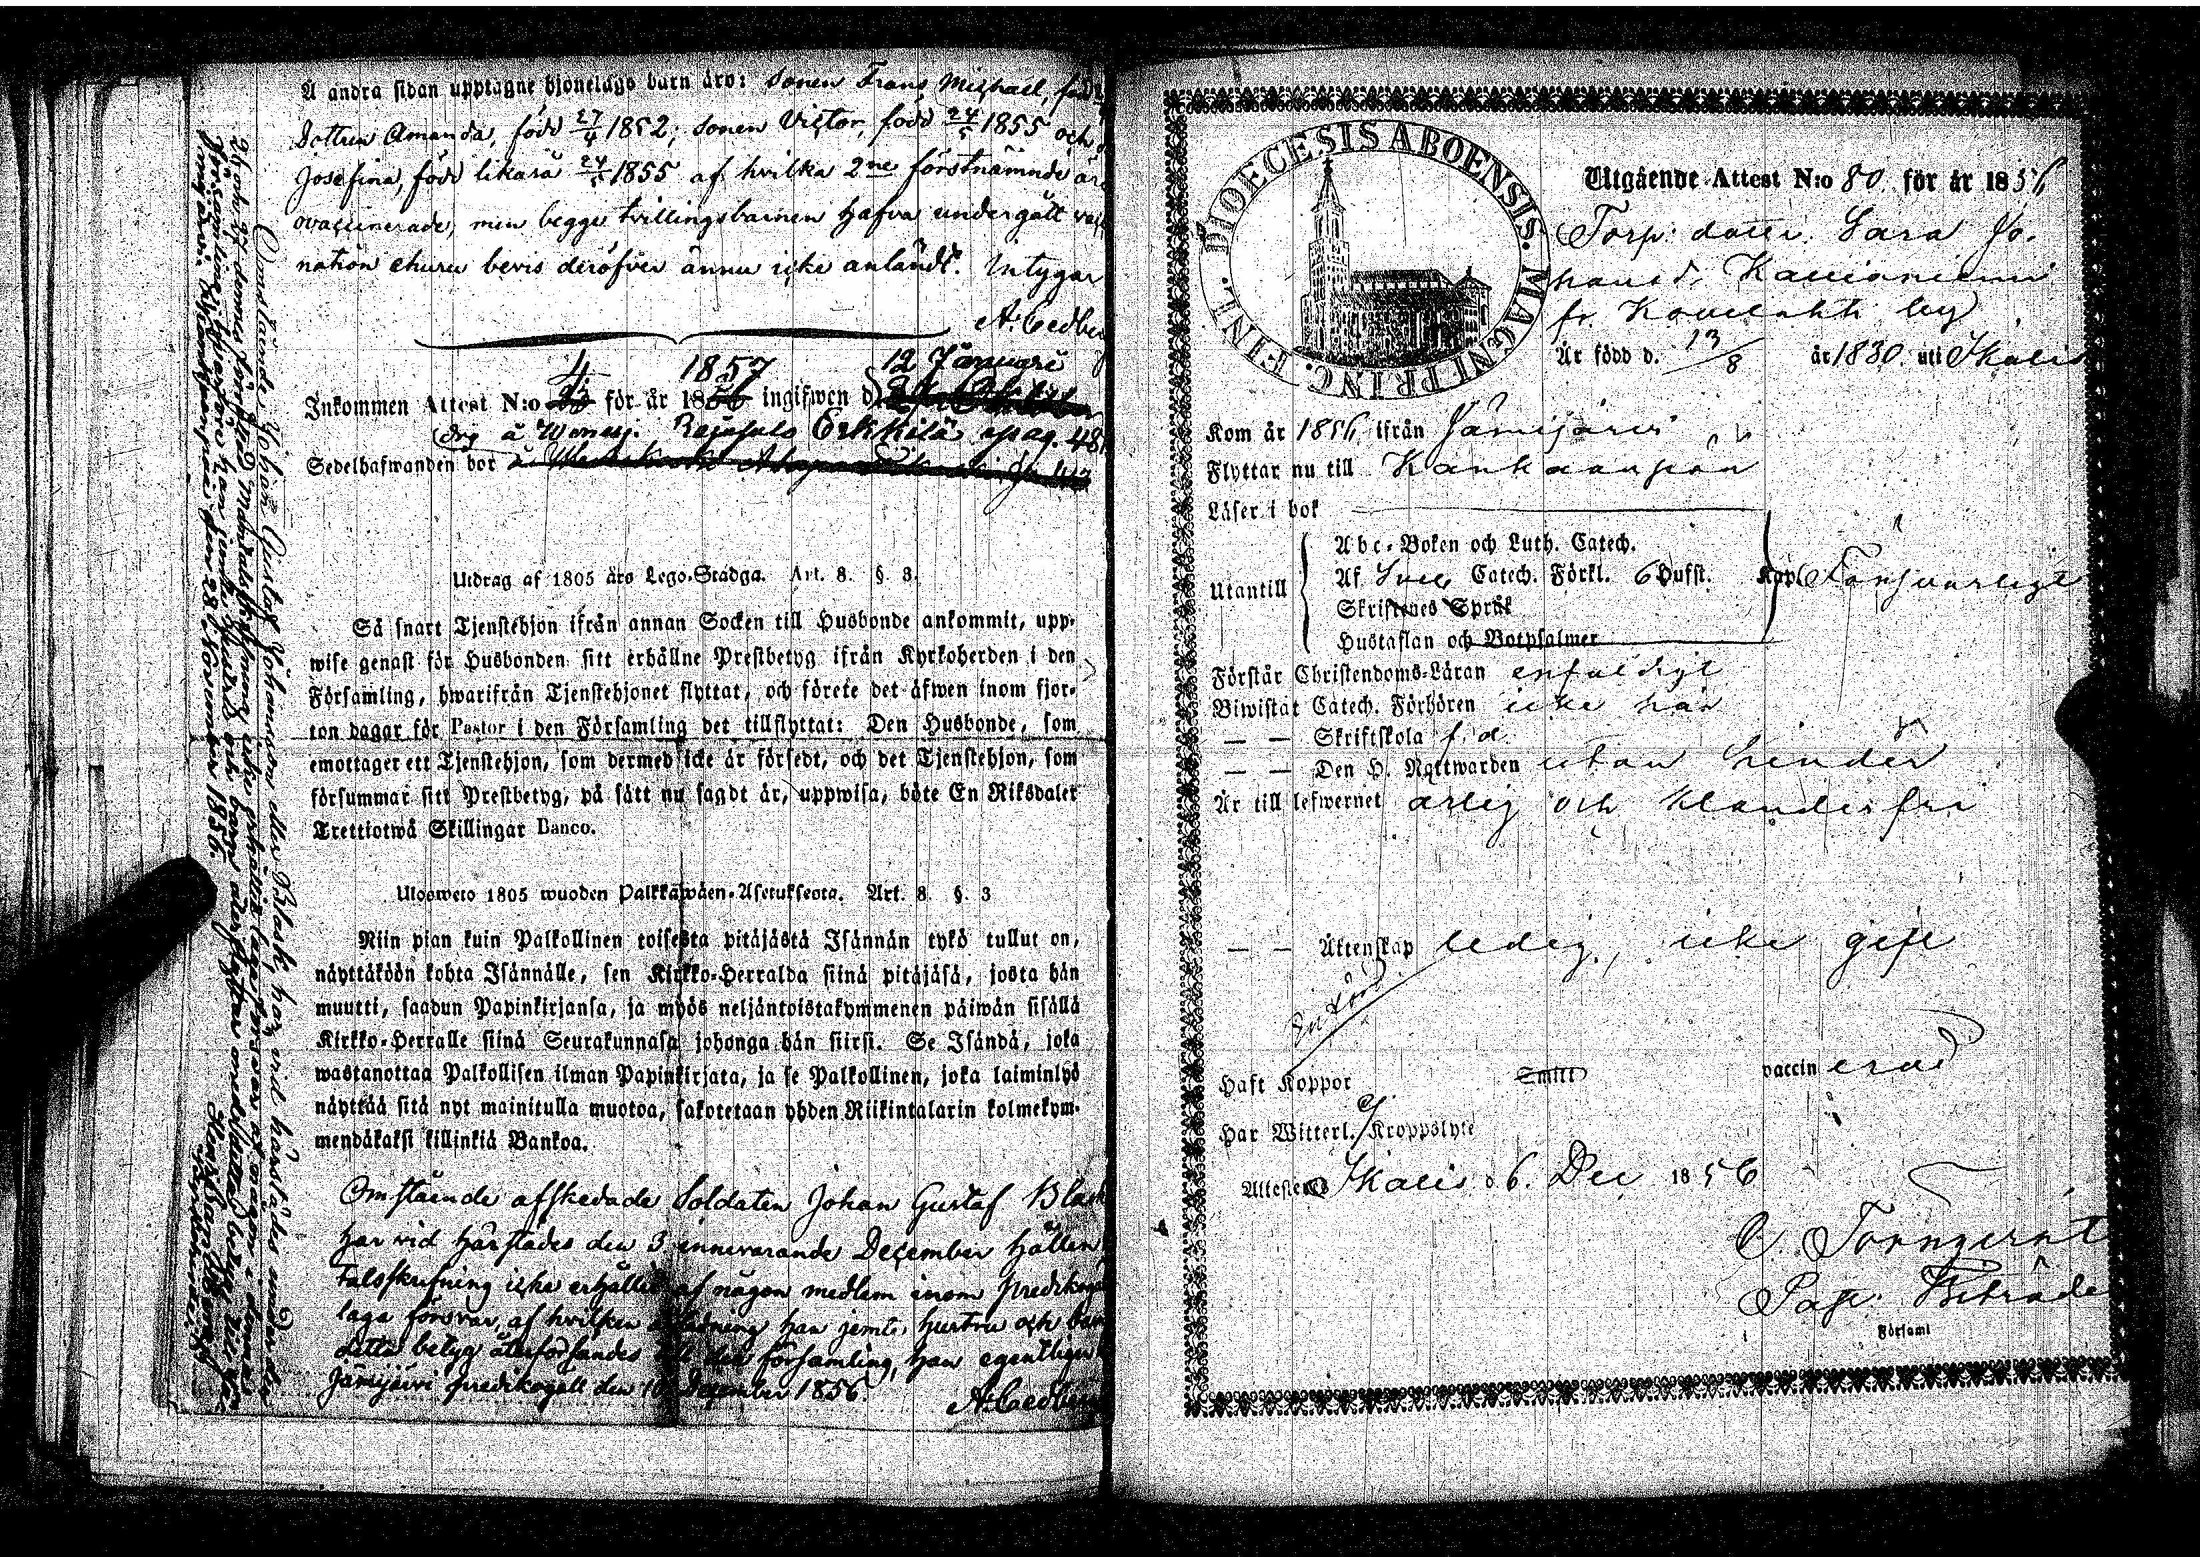 Å andra sidan upptagne hjonelags barn äro: Sonen Frans Michael, född
Dottren Amanda, född 27/4 1852; Sonen Victor, född 24/5 1855 och
Josefina, född likaså 24/5 1855 af hvilka 2ne förstnämnde äro
ovaccinerade, men begge tvillingsbarnen hafva undergått vacci
nation ehuru bevis deröfver ännu icke anländt. Intygar
A. Cedber
4 1857 12 Januari
Inkommen Attest N:o för år 18 ingifwen d
å Rajasalo Erkkilä pag. 48
Sedelhafwanden bor
Utdrag af 1805 års Lego-Stadga. Art. 8. §. 3.
Så snart Tjenstehjon ifrån annan Socken till Husbonde ankommit, upp-
wise genast för Husbonden sitt erhållne Prestbetyg ifrån Kyrkoherden i den
Församling, hwarifrån Tjenstehjonet flyttat, och förete det äfwen inom fjor-
ton dagar för Pastor i den Församling det tillflyttat: Den Husbonde, som
emottager ett Tjenstehjon, som dermed icke är försedt, och det Tjenstehjon, som
försummar sitt Prestbetyg, på sätt nu sagdt är, uppwisa, böte En Riksdaler
Trettiotwå Skillingar Banco.
Ulosweto 1805 wuoden Palkkawäen-Asetuksesta. Art. 8. §. 3
Niin pian kuin Palkollinen toisesta pitäjästä Isännän tykö tullut on,
näyttäköön kohta Isännälle, sen Kirkko-Herralda siinä pitäjäsä, josta hän
muutti, saadun Papinkirjansa, ja myös neljäntoistakymmenen päiwän sisällä
Kirkko-Herralle siinä Seurakunnasa johonga hän siirsi. Se Isändä, joka
wastanottaa Palkollisen ilman Papinkirjata, ja se Palkollinen, joka laiminlyö
näyttää sitä nyt mainitulla muotoa, sakotetaan yhden Riikintalarin kolmekym-
mendäkaksi killinkiä Bankoa.
Omstående afskedade Soldaten Johan Gustaf Blask
har vid härstädes den 3 innevarande December hållen
Talsskrifning icke erhållit af någon medlem inom predikogäll
laga försvar, af hvilken anledning han jemte hustru och barn
detta betyg återförsändes till den församling, han egentligen
Jämijärvi predikogäll den 10 December 1856.
A. Cedber
Omstående Johan Gustaf Johansson eller Blask, har vid härstädes under den
26 och 27 dennes förrättad Mantalsskrifning icke erhållit laga försvar af någon i denna
Församling, hvarföre han jemte hustru och barn återflyttar med detta betyg till
Jämijärvi. Kankaanpää den 28 November 1856.
DIOECESIS ABOENSIS. MAGNI PRINC. FINL.
Utgående Attest N:o 80 för år 1856
Torp. dotter Sara Jo-
hansd.
fr. Kovelahti by
Är född d. 13/8 år 1830 uti Ikalis
Kom år 1856 ifrån Jämijärvi
Flyttar nu till Kankaanpää
Läser i bok
Utantill
Abc-Boken och Luth. Catech.
Af Sveb. Catech. Förkl. 6 Hufst. Kapl. Försvarligt
Skriftenes Språk
Hustaflan och Botpsalmer
Förstår Christendoms-Läran enfaldigt
Biwistat Catech. Förhören icke här
— — Skriftskola f. d.
— — Den H. Nattwarden utan hinder
Är till lefwernet ärlig och klanderfri
— — Äktenskap ledig, icke gift
Haft Koppor Smitt vaccinerad
Har Witterl. Ej Kroppslyte
Attesteras Ikalis d 6. Dec 1856
C. Törnqvist
Past. Biträde
Församl